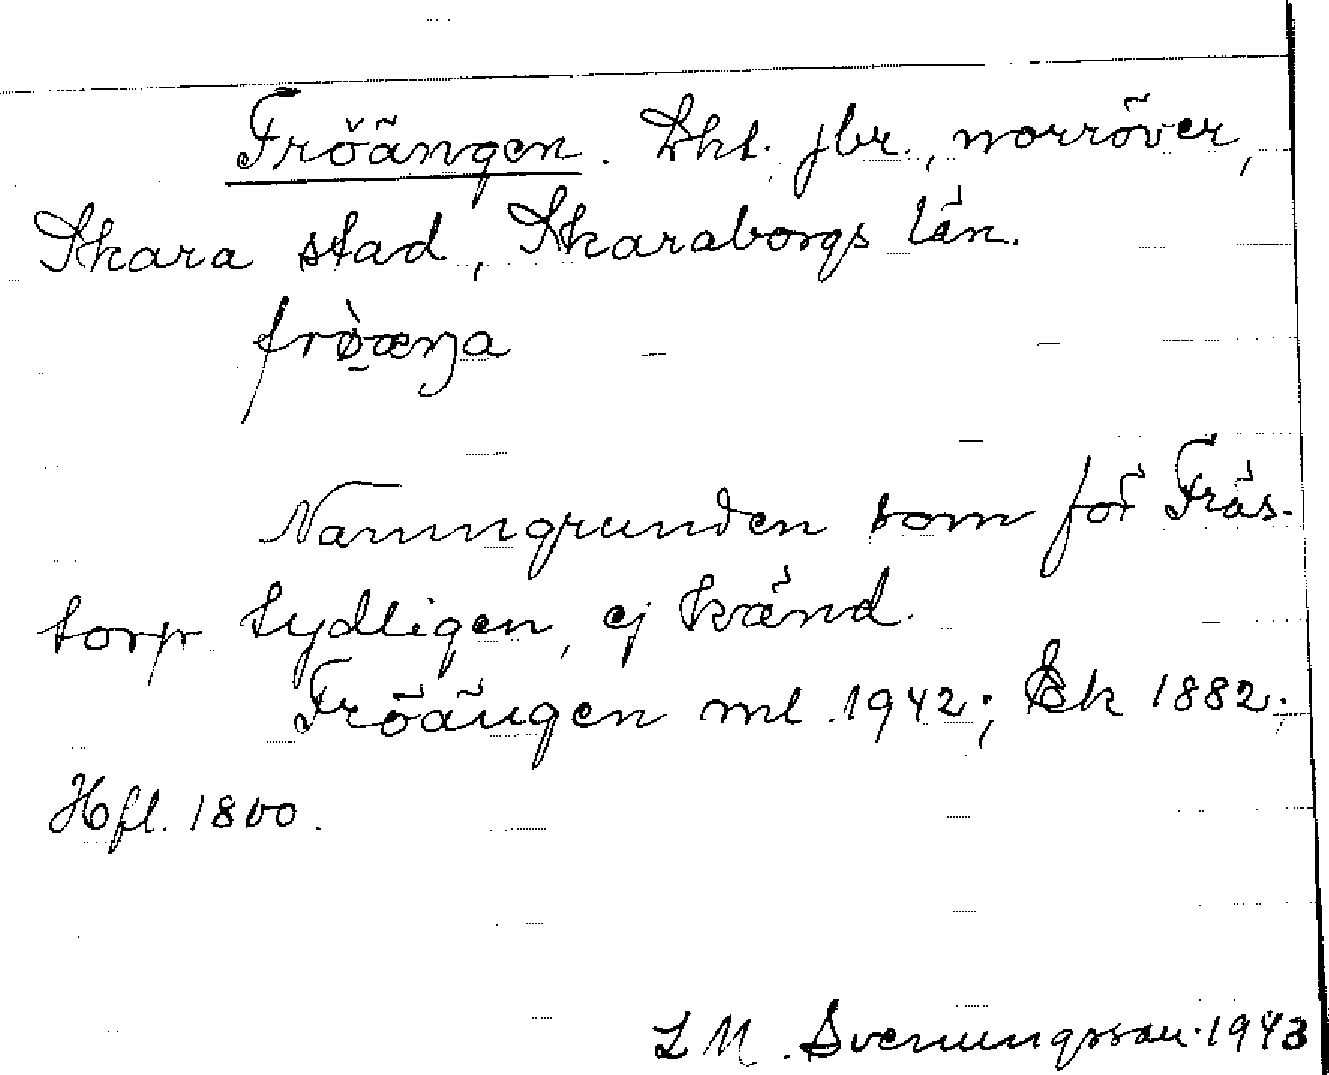 Fröängen. Lht. jbr., norröver,
Skara stad, Skaraborgs län.
frø̱̀æŋa
Namngrunden som för Fräs-
torp tydligen, ej känd.
Fröängen ml 1942; Ek 1882;
Hfl. 1800.
L M. Svenungsson. 1943